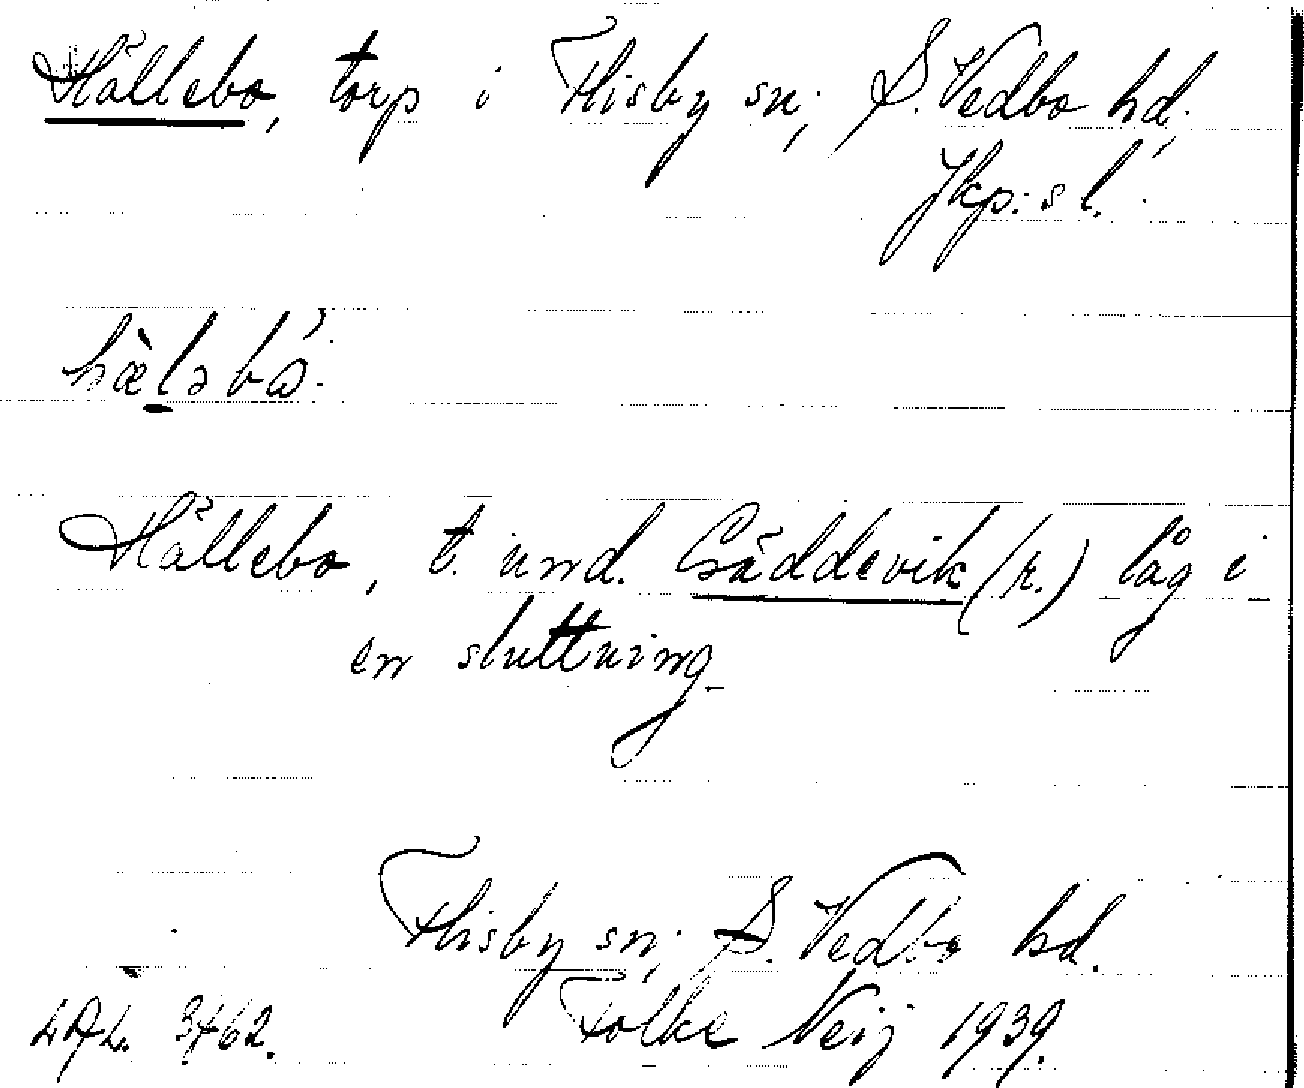 Hällebo, torp i Flisby sn, S. Vedbo hd,
Jkp:s l.
hæ̀ləbω.
Hällebo, t. und. Gäddevik (r.) låg i
en sluttning
Flisby sn, S. Vedbo hd.
LAL. 3462. Folke Neij 1939.